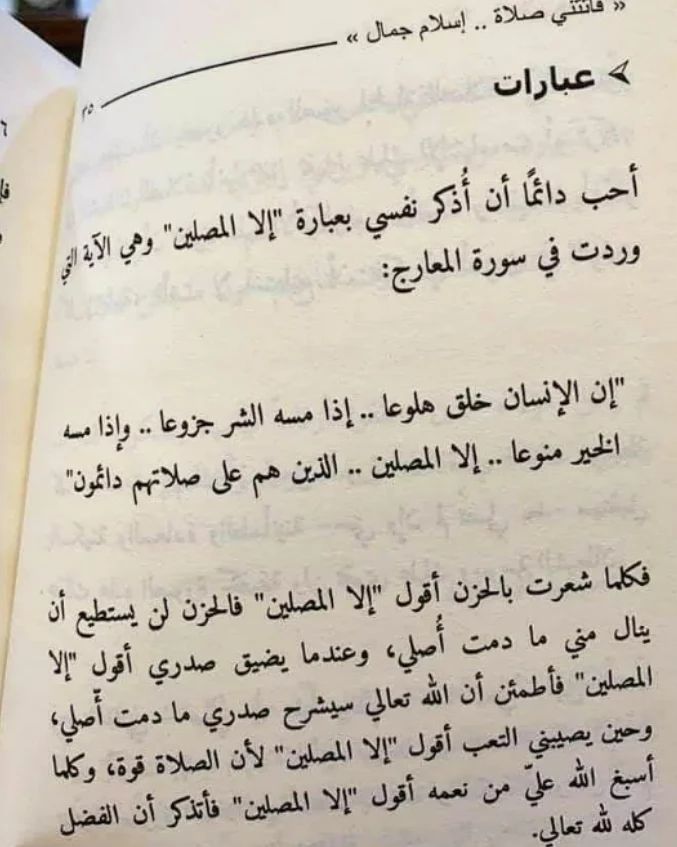 « فاتتني صلاة .. إسلام جمال »
٣٥
عبارات
أحب دائمًا أن أُذكر نفسي بعبارة "إلا المصلين" وهي الآية التي
وردت في سورة المعارج:
"إن الإنسان خلق هلوعا .. إذا مسه الشر جزوعا .. وإذا مسه
الخير منوعا .. إلا المصلين .. الذين هم على صلاتهم دائمون"
فكلما شعرت بالحزن أقول "إلا المصلين" فالحزن لن يستطيع أن
ينال مني ما دمت أُصلي، وعندما يضيق صدري أقول "إلا
المصلين" فأطمئن أن الله تعالي سيشرح صدري ما دمت أُصلي،
وحين يصيبني التعب أقول "إلا المصلين" لأن الصلاة قوة، وكلما
أسبغ الله عليّ من نعمه أقول "إلا المصلين" فأتذكر أن الفضل
كله لله تعالي.